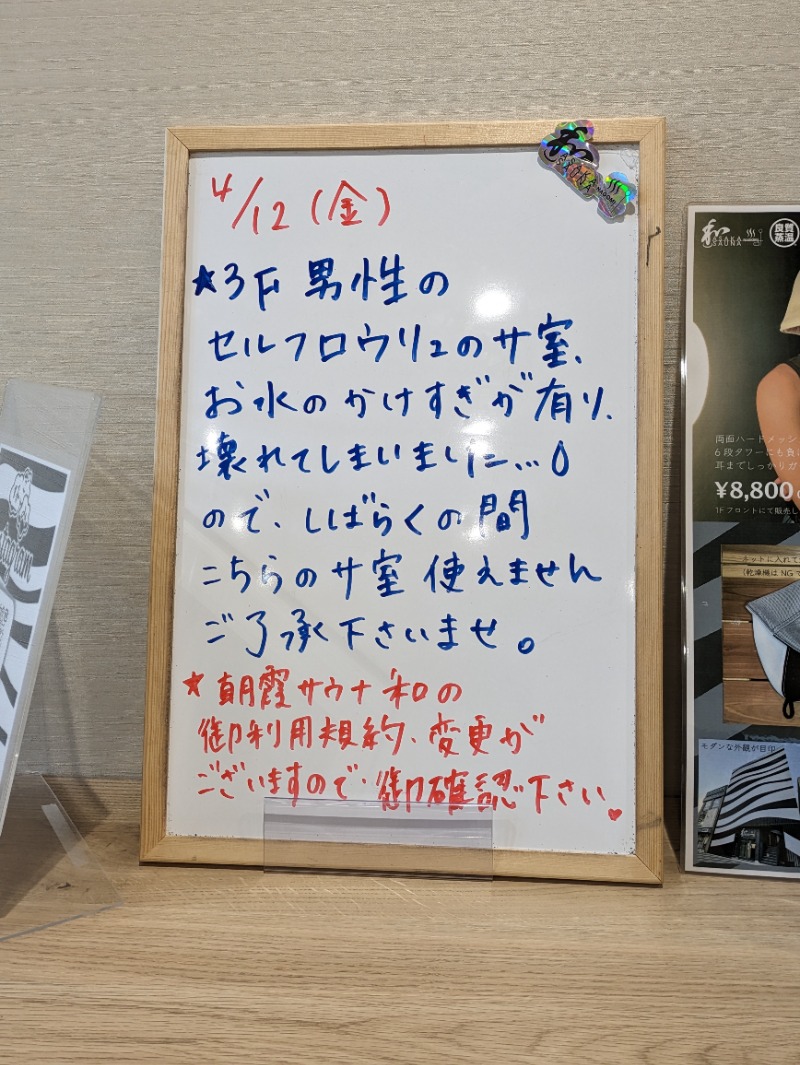 4/12(金)
★3F 男性の
セルフロウリュのサ室、
お水のかけすぎが有り、
壊れてしまいました...
ので、しばらくの間
こちらのサ室 使えません
ご了承下さいませ。
★朝霞サウナ和の
御利用規約、変更が
ございますので、御確認下さい♥
和
SAUNA
良質
蒸温
両面ハードメッシ
6段タワーにも負
耳までしっかりガ
¥8,800
1Fフロントにて販売し
ネットに入れて
(乾燥機はNGで
モダンな外観が目印